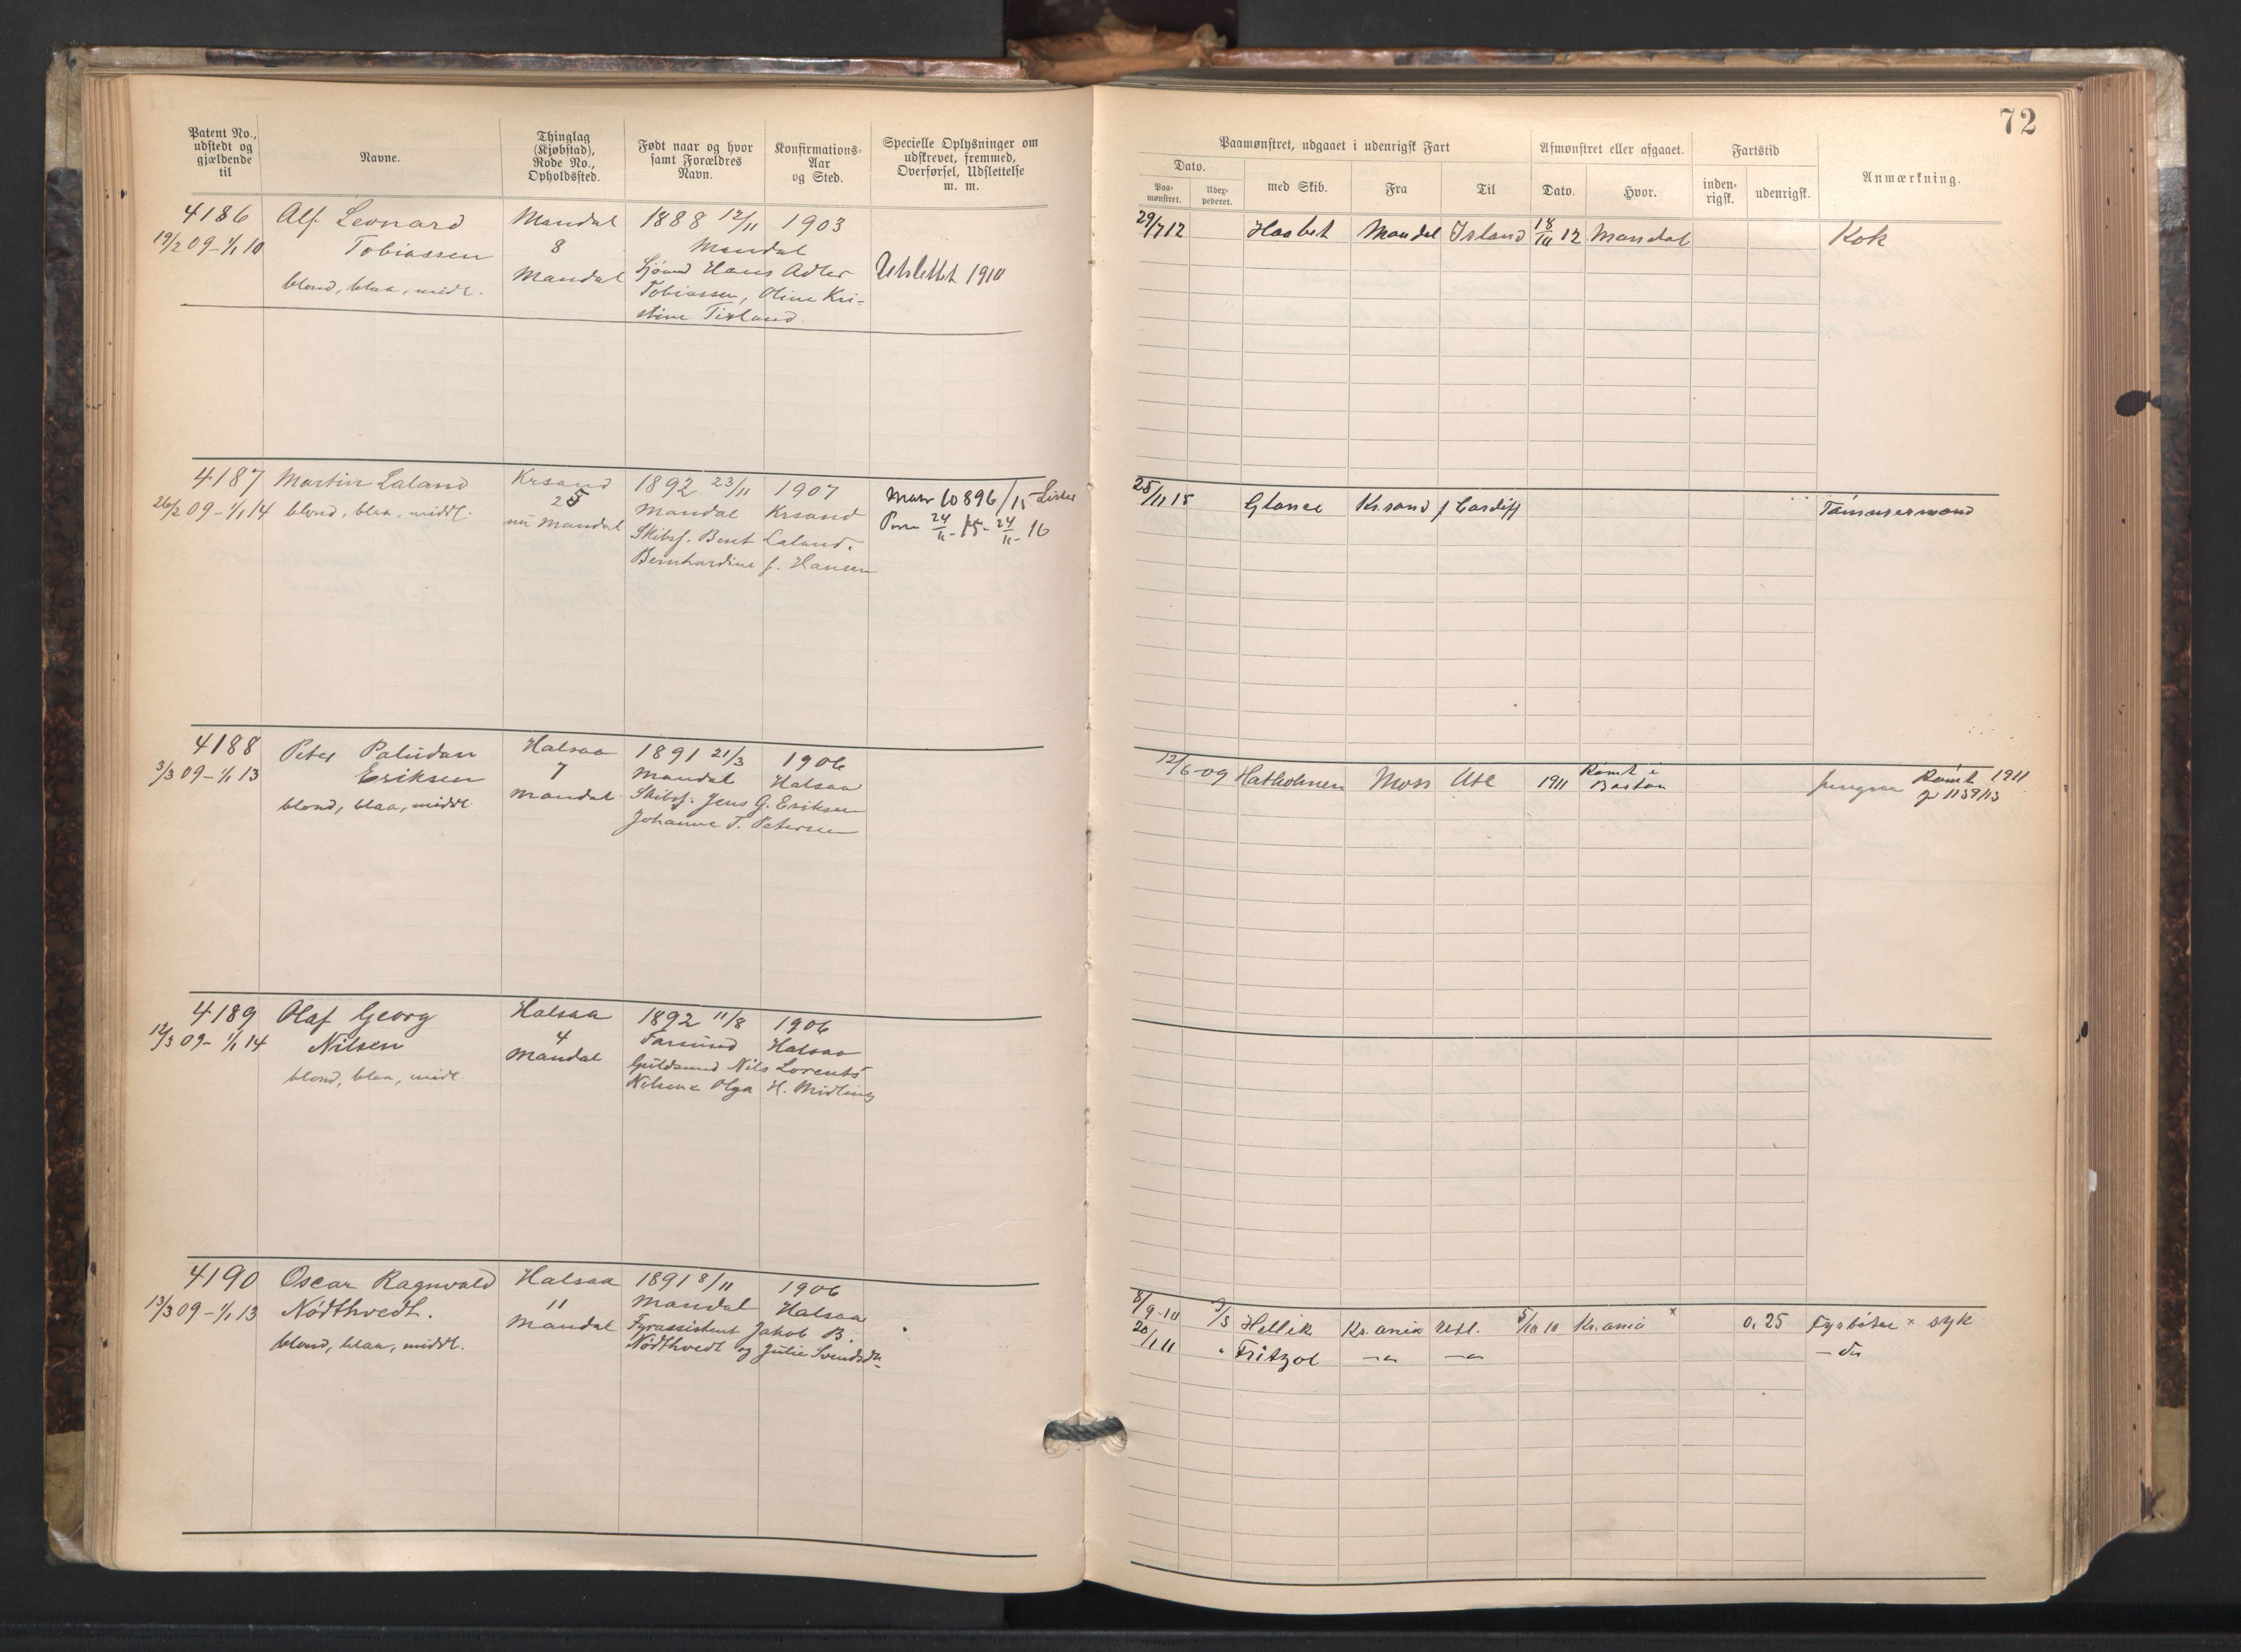 72
Patent No., udstedt og gjældende til
Navne.
Thinglag (Kjøbstad), Rode No., Opholdssted.
Født naar og hvor samt Forældres Navn.
Konfirmations-Aar og Sted.
Specielle Oplysninger om udskrevet, fremmed, Overførsel, Udslettelse m. m.
Paamønstret, udgaaet i udenrigsk Fart
Afmønstret eller afgaaet.
Fartstid
Anmærkning.
Dato.
Paa-mønstret.
Udex-pederet.
med Skib.
Fra
Til
Dato.
Hvor.
inden-rigsk.
udenrigsk.
4186 Alf Leonard Mandal 1888 12/11 1903
19/2 09 – 1/1 10 Tobiassen 8 Mandal
blond, blaa, midl. Mandal Sjømd Hans Adler Utslettet 1910
Tobiassen, Oline Kri-
stine Tisland
29/7 12 Haabet Mandal Island 18/10 12 Mandal Kok
4187 Martin Laland Krsand 1892 23/11 1907
26/2 09 – 1/1 14 blond, blaa, middl. 25 Mandal Krsand
nu Mandal Skibsf. Bent Laland.
Bernhardine f. Hansen
10896/15
24/11 – 15 – 24/11 – 16
25/11 15 Glance Kr.sand f Cardiff Tømmermand
4188 Peter Paludan Halsaa 1891 21/3 1906
3/3 09 – 1/1 13 Eriksen 7 Mandal Halsaa
blond, blaa, middl. Mandal Skibsf. Jens G. Eriksen
Johanne T. Petersen
12/6-09 Hatholmen Moss 1911 Rømt i Boston Jungm Rømt 1911
1139/13
4189 Olaf Georg Halsaa 1892 11/8 1906
12/3 09 – 1/1 14 Nilsen 4 Farsund Halsaa
blond, blaa, midl. Mandal Guldsmd Nils Lorents
Nilsen & Olga H. Midling
4190 Oscar Ragnvald Halsaa 1891 8/11 1906
13/3 09 – 1/1 13 Nødthvedt. 11 Mandal Halsaa
blond, blaa, middl. Mandal Fyrassistent Jakob B.
Nødthvedt og Julie Svendsdn
8/9-10 9/3 Hellik Kr.ania Utl. 5/10 10 Kr.ania x 0.25 Fyrbøter x syk
20/1 11 " Fritzoe –"– –"– – do